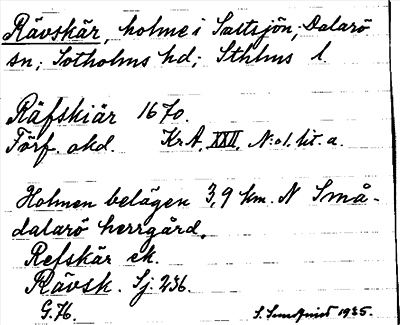 Rävskär, holme i Saltsjön, Dalarö
sn; Sotholms hd; Sthlms l.
Räfskiär 1670.
Förf. akd. Kr.A. XXVI, N:o1. lit. a.
Holmen belägen 3,9 km. N Små-
dalarö herrgård.
Refskär ek.
Rävsk. Sj. 236.
G.76.
S. Sundqvist 1935.